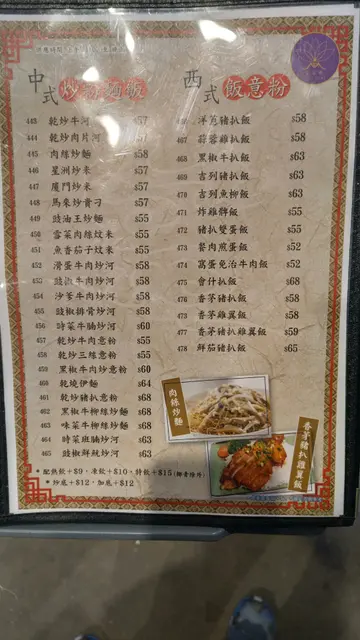 中式
443 乾炒牛河 $57
444 乾炒肉片河 $57
445 肉絲炒麵 $58
446 星洲炒米 $57
447 廈門炒米 $57
448 馬來炒貴刁 $57
449 豉油王炒麵 $55
450 雪菜肉絲炆米 $55
451 魚香茄子炆米 $55
452 滑蛋牛肉炒河 $58
453 豉椒牛肉炒河 $58
454 沙爹牛肉炒河 $58
455 豉椒排骨炒河 $58
456 時菜牛腩炒河 $60
457 乾炒牛肉意粉 $55
458 乾炒三絲意粉 $55
459 黑椒牛肉炒意粉 $60
460 乾燒伊麵 $64
461 乾炒豬扒意粉 $68
462 黑椒牛柳絲炒麵 $68
463 味菜牛柳絲炒麵 $68
464 時菜斑腩炒河 $63
465 豉椒鮮魷炒河 $63
西式 飯意粉
洋蔥豬扒飯 $58
467 蒜蓉雞扒飯 $58
468 黑椒牛扒飯 $63
469 吉列豬扒飯 $63
470 吉列魚柳飯 $63
471 炸雞髀飯 $55
472 豬扒雙蛋飯 $55
473 餐肉煎蛋飯 $52
474 窩蛋免治牛肉飯 $52
475 會什扒飯 $68
476 香茅豬扒飯 $58
477 香茅雞翼飯 $58
477 香茅豬扒雞翼飯 $59
478 鮮茄豬扒飯 $65
肉絲炒麵
香茅豬扒雞翼飯
*配熱飲+$9，凍飲+$10，特飲+$15(椰青除外)
*炒底+$12，加底+$12